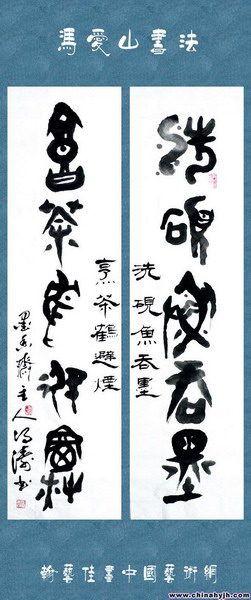 馮愛山書法
洗硯魚吞墨
洗硯魚吞墨
烹茶鶴避煙
烹茶鶴避煙
齋主人
翰藝佳畫中國藝術網
www.chinahyjh.com